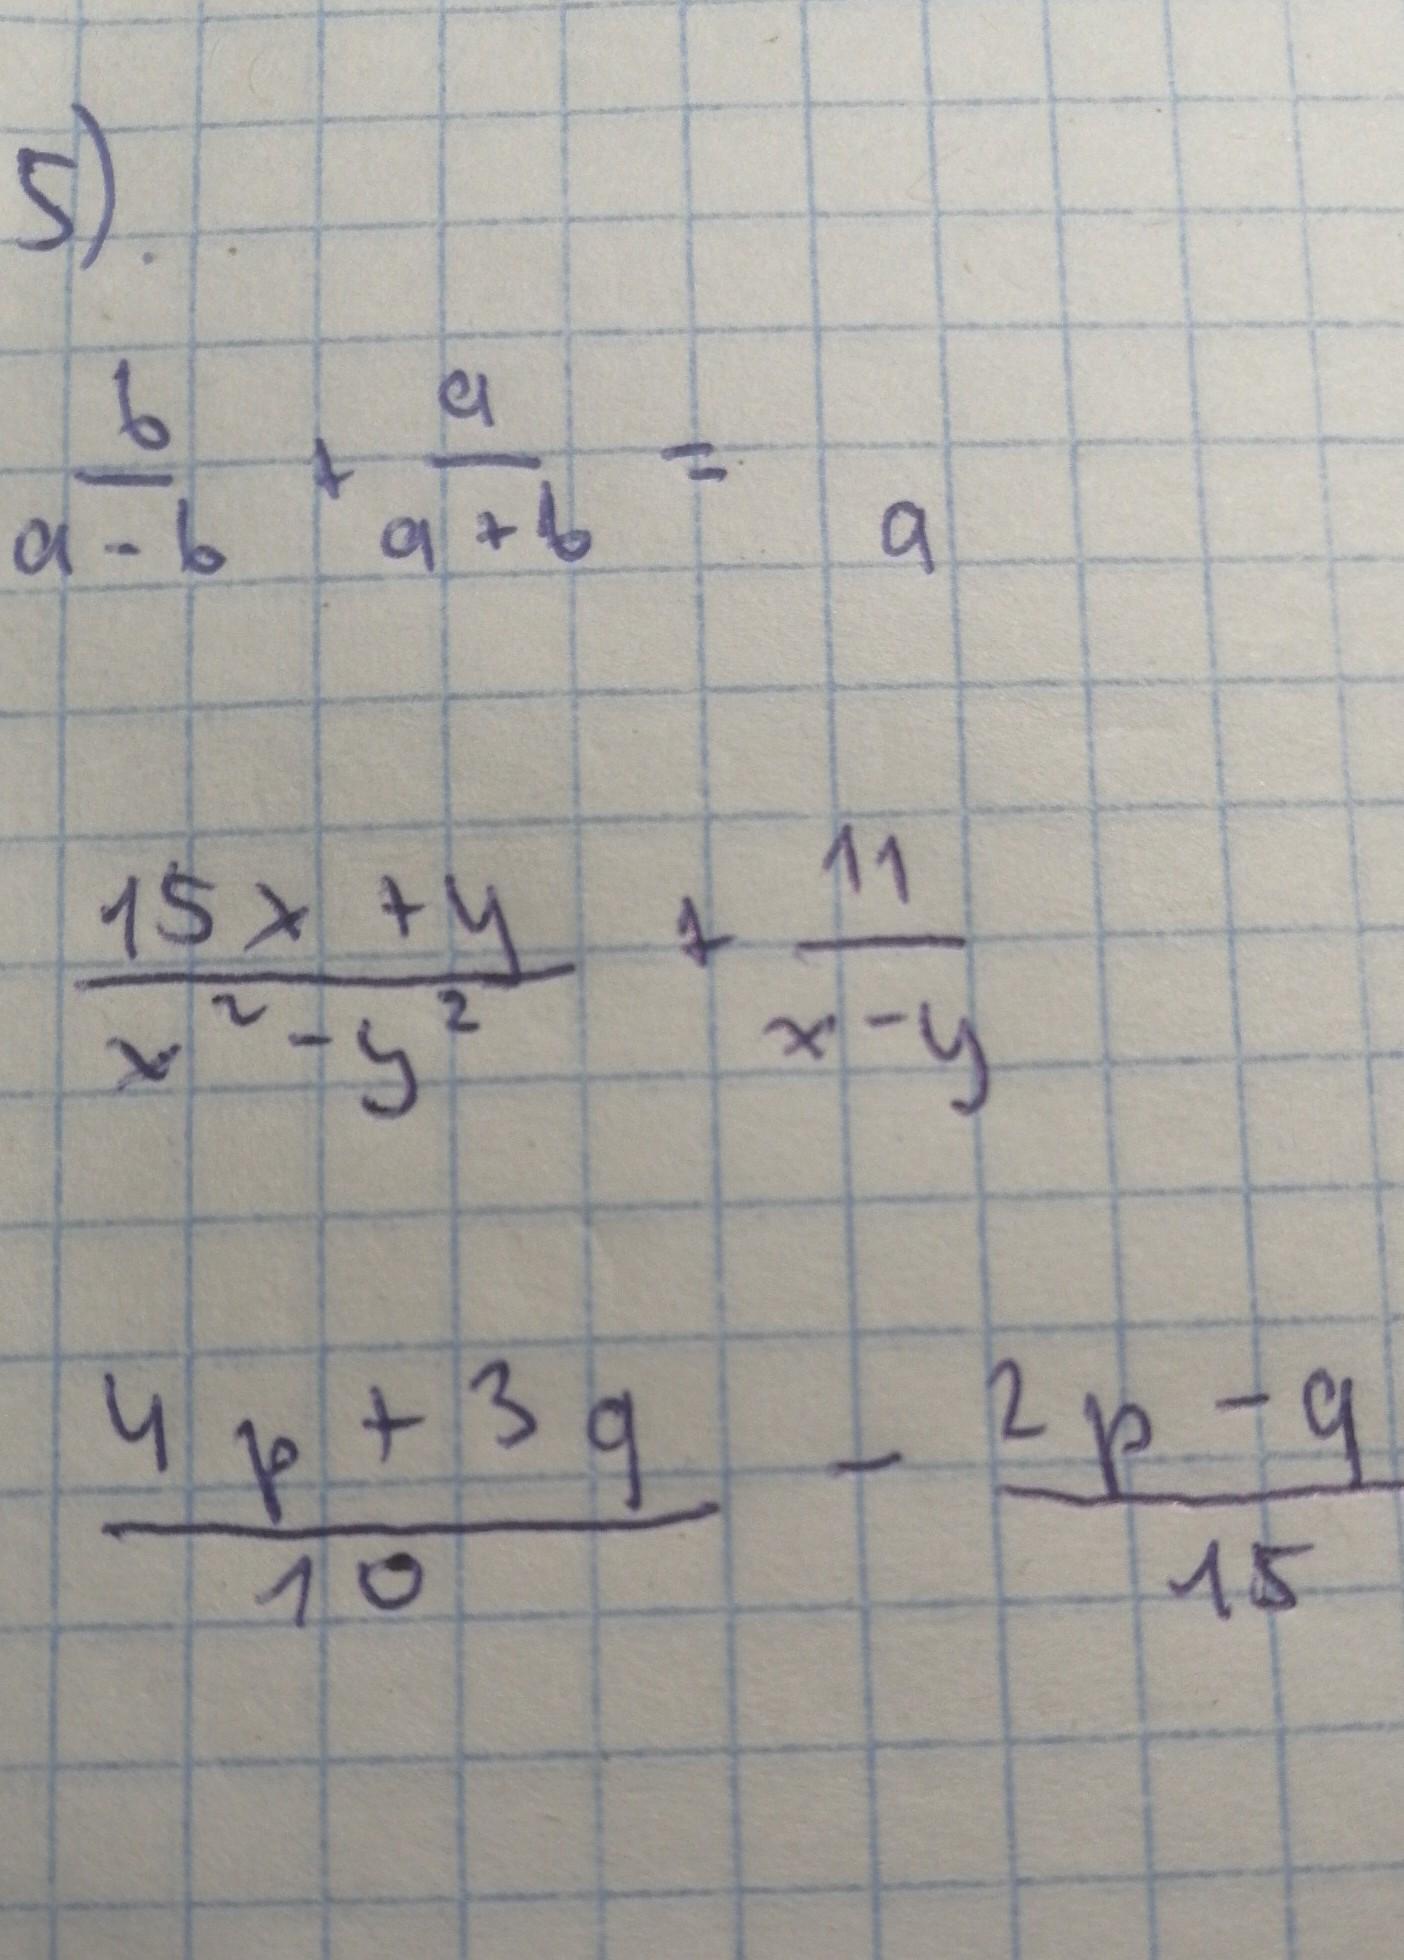 5).
b/(a - b) + a/(a + b) = a
(15x + y)/(x² - y²) + 11/(x - y)
(4p + 3q)/10 - (2p - q)/15